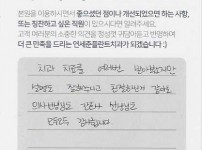 본원을 이용하시면서 좋으셨던 점이나 개선되었으면 하는 사항,
또는 칭찬하고 싶은 직원이 있으시다면 알려주세요.
고객 여러분의 소중한 의견을 정성껏 귀담아듣고 반영하여
더 큰 만족을 드리는 연세준플란트치과가 되겠습니다 :)
치과 치료를 여러번 받아봤지만
설명도 친절하고
의사선생님도 간호사 선생님도
모두모두 감사합니다.